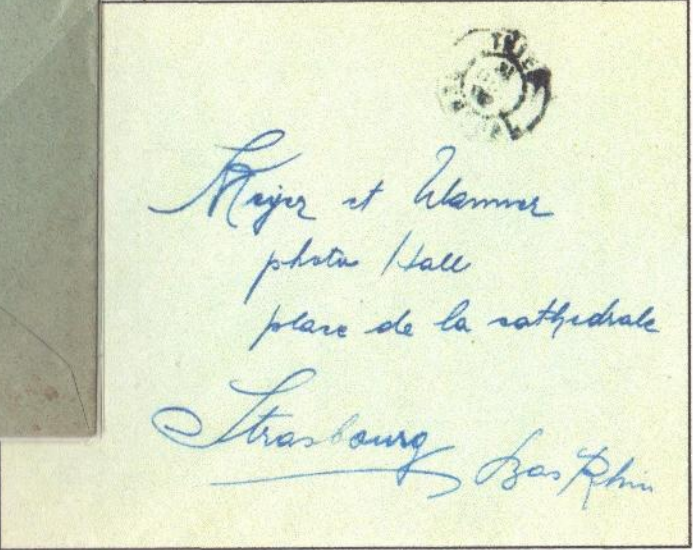 Meyer et Wanner
photo Hall
place de la cathedrale
Strasbourg Bas Rhin